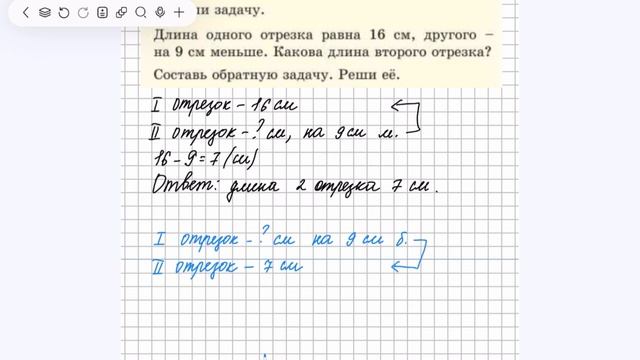 ли задачу.
Длина одного отрезка равна 16 см, другого –
на 9 см меньше. Какова длина второго отрезка?
Составь обратную задачу. Реши её.
I отрезок – 16 см
II отрезок – ? см, на 9 см м.
16 – 9 = 7 (см)
Ответ: длина 2 отрезка 7 см.
I отрезок – ? см на 9 см б.
II отрезок – 7 см